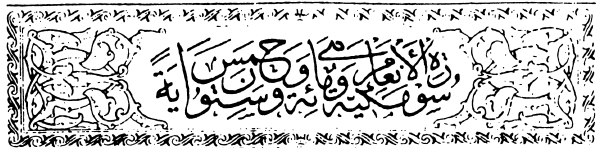 سورة الأنعام مكية وهي مائة وخمس وستون آية